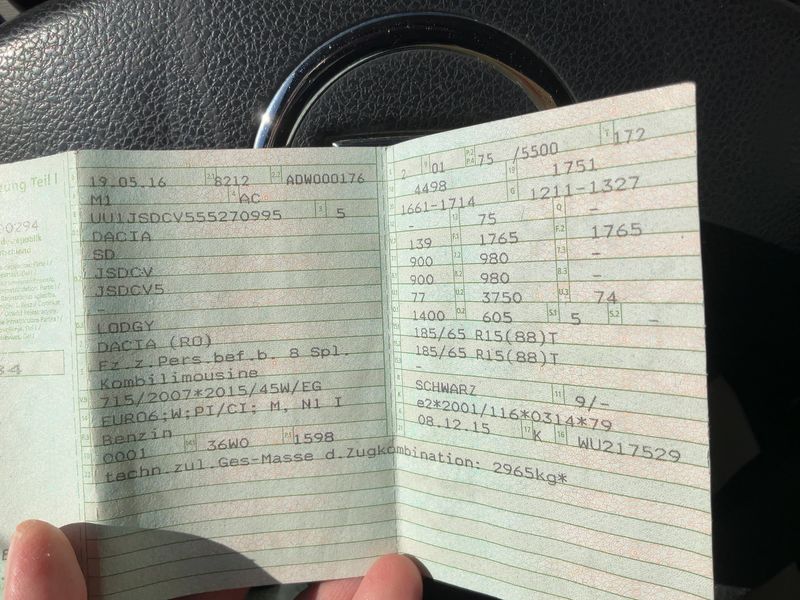 ung Teil I
19.05.16 8212 ADW000176
M1 AC
UU1JSDCV555270995 5
DACIA
SD
JSDCV
JSDCV5
-
LODGY
DACIA (RO)
Fz.z.Pers.bef.b. 8 Spl.
Kombilimousine
715/2007*2015/45W/EG
EURO6;W;PI/CI; M, N1 I
Benzin
0001 36W0 1598
techn.zul.Ges-Masse d.Zugkombination: 2965kg*
2 01 75 /5500 172
4498 1751
1661-1714 1211-1327
- 75 -
139 1765 1765
900 980 -
900 980 -
77 3750 74
1400 605 5 -
185/65 R15(88)T
185/65 R15(88)T
-
SCHWARZ 9/-
e2*2001/116*0314*79
08.12.15 K WU217529